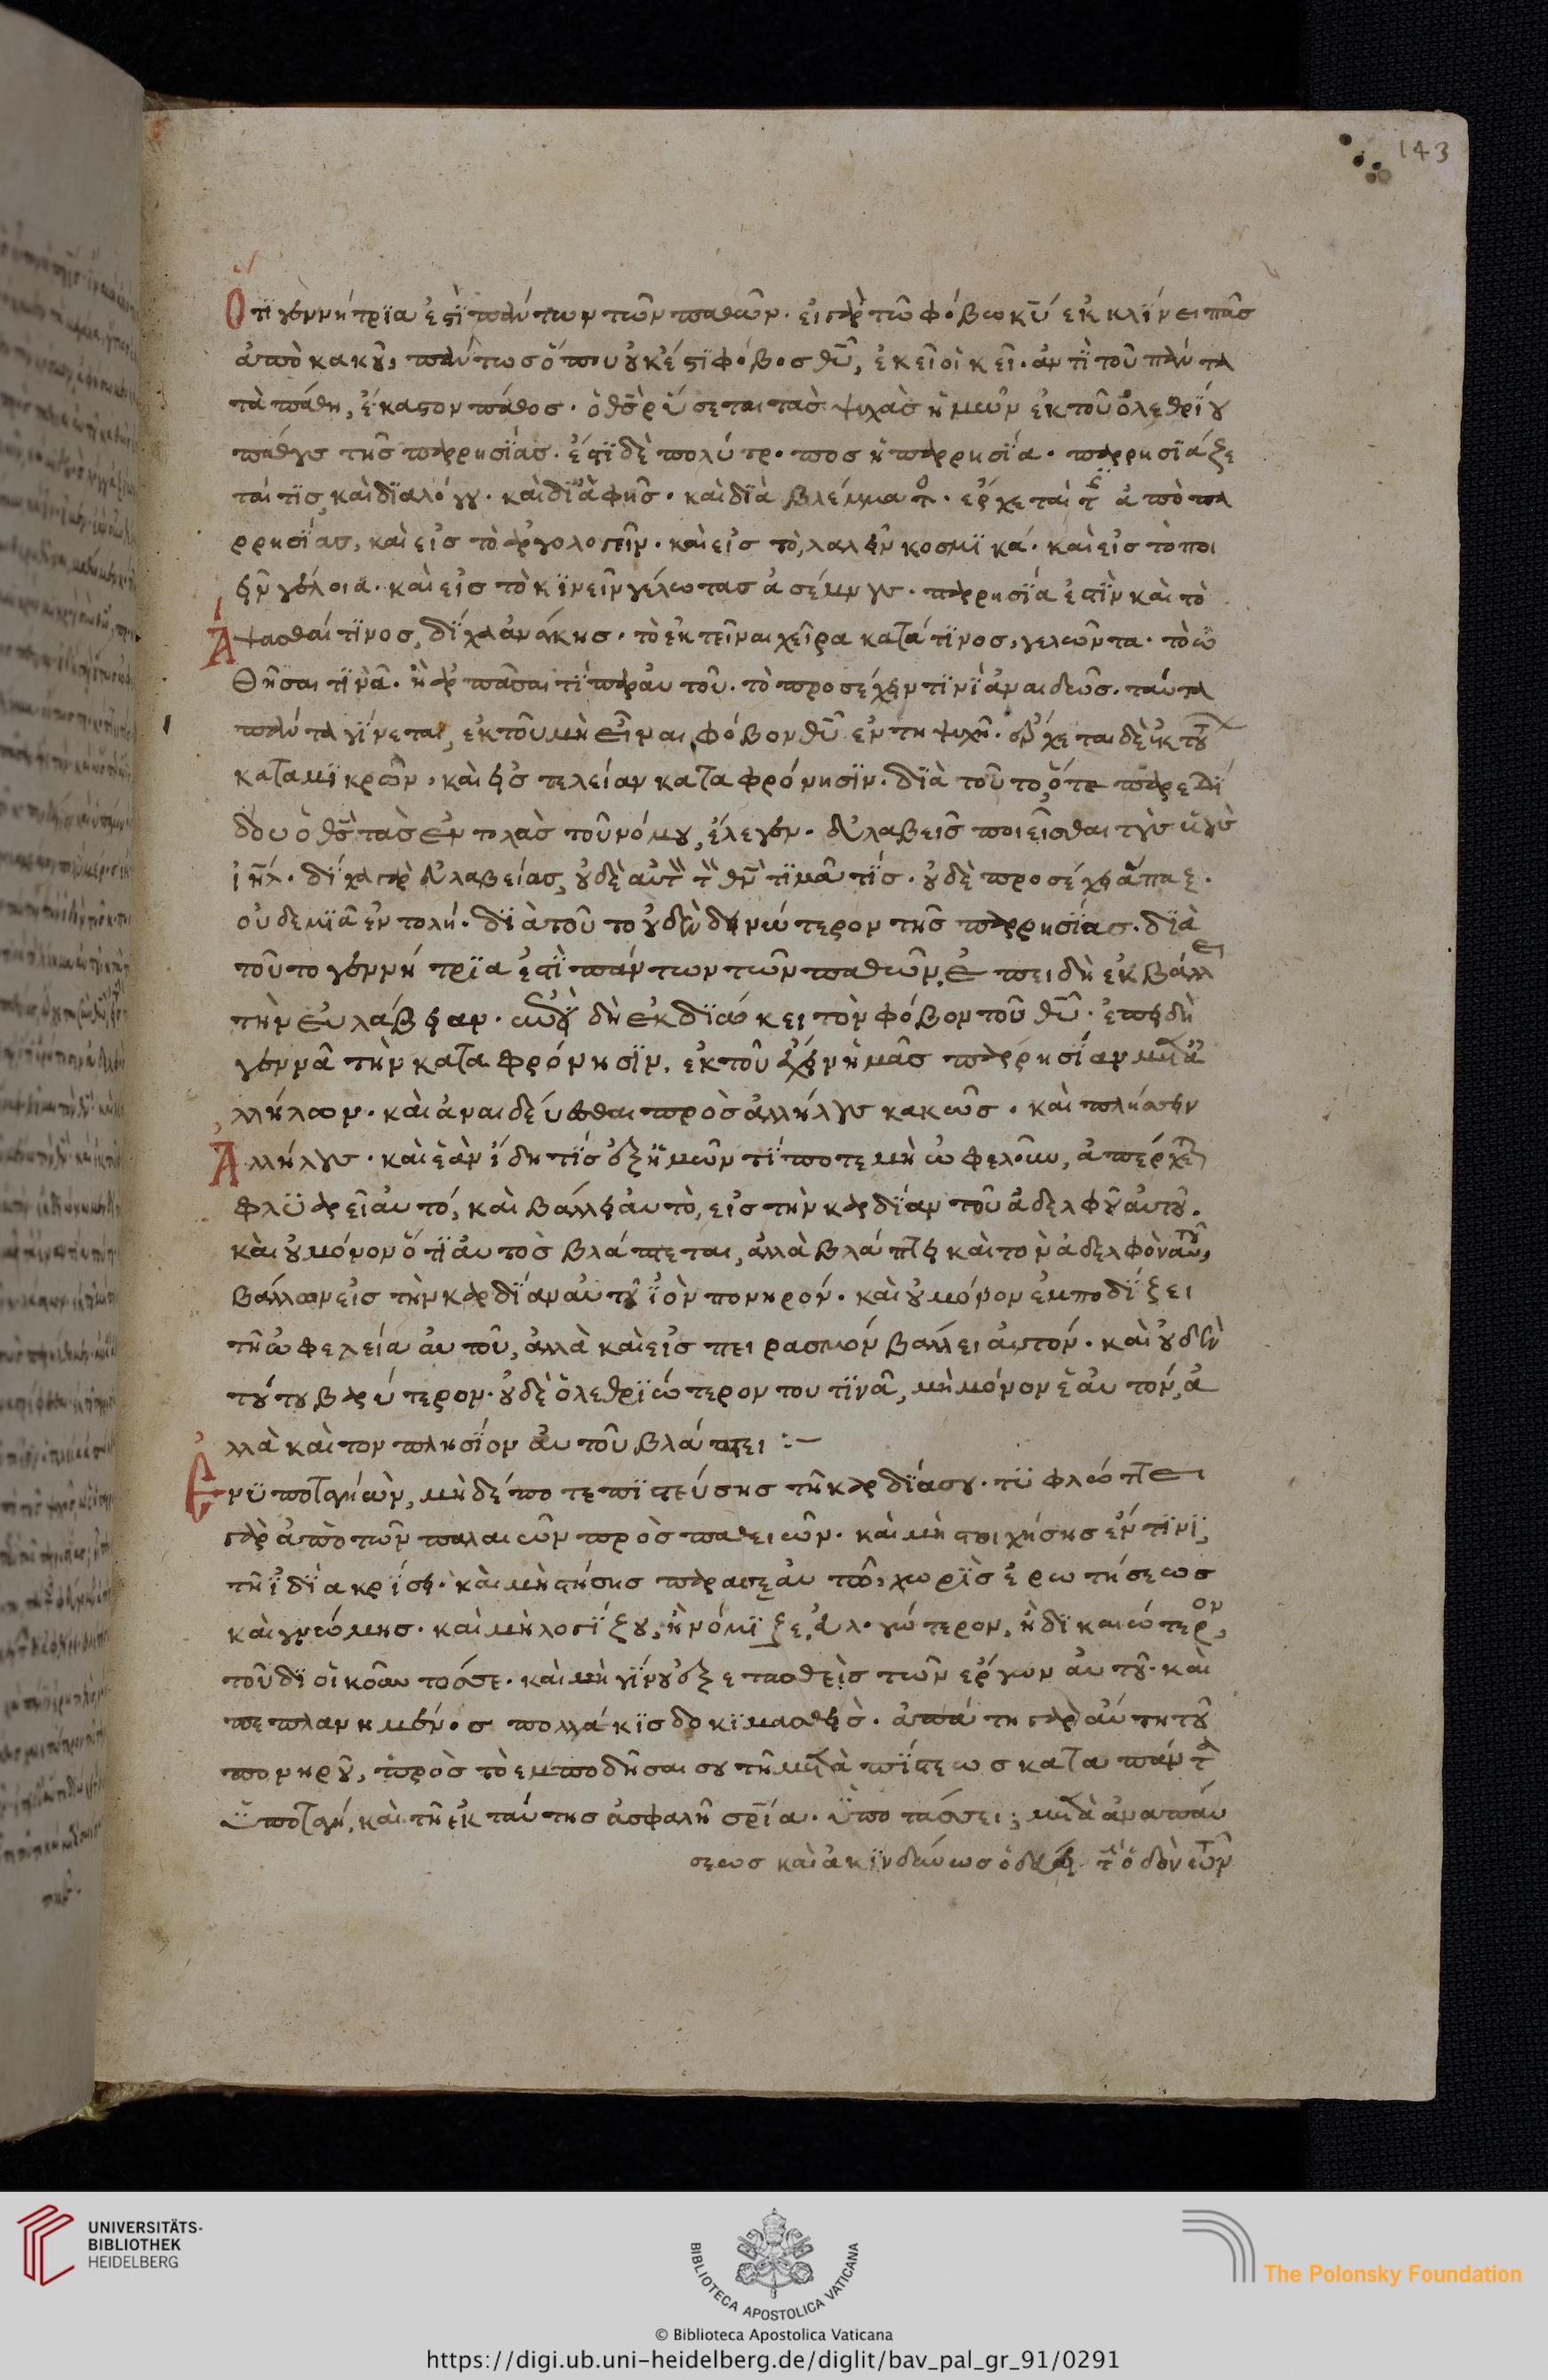 143
Ὅτϊ γεννήτρϊα ἐστὶ πάντων τῶν παθῶν. εἰ γὰρ τῶ φόβω κυ ἐκκλίνει πᾶσ
ἀπὸ κακοῦ, πάντωσ ὅπου οὐκ ἔστϊ φόβοσ θυ, ἐκεῖ οἰκεῖ. ἀντὶ τοῦ πάντα
τὰ πάθη, ἕκαστον πάθοσ. ὁ θσ ῥύσεται τὰσ ψυχὰσ ἡμῶν ἐκ τοῦ ὀλεθρίου
πάθουσ τῆσ παρρησϊάσ. ἔστϊ δὲ πολύτροποσ ἡ παρρησϊά. παρρησϊάζε
ταί τϊσ, καὶ δϊὰ λόγου. καὶ δϊ ἀφῆσ. καὶ δϊὰ βλέμματοσ. ἔρχεταί τισ ἀπὸ πα
ρρησίασ, καὶ εἰσ τὸ ἀργολογεῖν. καὶ εἰσ τὸ, λαλεῖν κοσμϊκά. καὶ εἰσ τὸ ποι
εῖν γέλοια. καὶ εἰσ τὸ κϊνεῖν γέλωτασ ἀσέμνουσ. παρρησϊά ἐστϊν καὶ τὸ
Ἅψασθαί τϊνοσ, δίχα ἀνάγκησ. τὸ ἐκτεῖναι χεῖρα κατά τϊνοσ, γελῶντα. τὸ ὠ
θῆσαι τϊνὰ. ἢ ἁρπᾶσαι τὶ παρ' αὐτοῦ. τὸ προσέχειν τϊνὶ ἀναιδῶσ. ταῦτα
πάντα γίνεται, ἐκ τοῦ μὴ εἶναι φόβον θυ ἐν τῆ ψυχῆ. ἔρχεται δὲ ἐκ τού
κατὰ μϊκρὸν, καὶ εἰσ τελείαν καταφρόνησϊν. δϊὰ τοῦτο, ὅτε παρεδί
δου ὁ θσ τὰσ ἐντολὰσ τοῦ νόμου, ἔλεγεν. εὐλαβεῖσ ποιεῖσθαι τοὺσ υἱοὺσ
ιηλ. δίχα γὰρ εὐλαβείασ, οὐδὲ αὐτὸν τὸν θν τϊμᾶ τίσ. οὐδὲ προσέχει ἅπαξ.
οὐδεμϊᾶ ἐντολή. δϊὰ τοῦτο οὐδὲν δεινώτερον τῆσ παρρησϊάσ. δϊὰ
τοῦτο γεννήτρϊα ἐστὶ πάντων τῶν παθῶν, ἐπειδὴ ἐκβάλλει
τὴν εὐλάβειαν. ἐπειδὴ ἐκδϊώκει τὸν φόβον τοῦ θυ. ἐπειδὴ
γεννᾶ τὴν καταφρόνησϊν. ἐκ τοῦ ἔχειν ἡμᾶσ παρρησίαν μετὰ ἀ
λλήλων. καὶ ἀναιδεύεσθαι πρὸσ ἀλλήλουσ κακῶσ. καὶ πλήσσειν
Ἀλλήλουσ. καὶ ἐὰν ἴδη τὶσ ἐξ ἡμῶν τί ποτε μὴ ὠφελοῦν, ἀπέρχεται
φλυαρεῖ αὐτό, καὶ βάλλει αὐτὸ, εἰσ τὴν καρδίαν τοῦ ἀδελφοῦ αὐτοῦ.
καὶ οὐ μόνον ὅτϊ αὐτὸσ βλάπτεται, ἀλλὰ βλάπτει καὶ τὸν ἀδελφὸν αὐτοῦ,
βάλλων εἰσ τὴν καρδϊάν αὐτοῦ ϊὸν πονηρόν. καὶ οὐ μόνον ἐμποδίζει
τῆ ὠφελεία αὐτοῦ, ἀλλὰ καὶ εἰσ πειρασμὸν βάλλει αὐτόν. καὶ οὐδὲν
τούτου βαρύτερον. οὐδὲ ὀλεθρϊώτερον του τϊνὰ, μὴ μόνον ἑαυτόν, ἀ
λλὰ καὶ τὸν πλησίον αὐτοῦ βλάπτει :–
Ἐν ὑποταγῆ ὢν, μηδέποτε πϊστεύσησ τῆ καρδϊά σου. τυφλώττει
γὰρ ἀπὸ τῶν παλαιῶν προσπαθειῶν. καὶ μὴ στοιχήσησ ἔν τϊνϊ,
τῆ ἰδία κρίσει. καὶ μὴ στήσησ παρὰ σεαυτῶ, χωρὶσ ἐρωτήσεωσ
καὶ γνώμησ. καὶ μὴ λογίζου, ἢ νόμϊζε, εὐλογώτερον, ἢ δϊκαιώτερον,
τοῦ διοικοῦντόσ σε. καὶ μὴ γίνου ἐξεταστὴσ τῶν ἔργων αὐτοῦ. καὶ
πεπλανημένοσ πολλάκϊσ δοκϊμασθεὶσ. ἀπάτη γὰρ αὕτη τοῦ
πονηροῦ, πρὸσ τὸ ἐμποδῆσαι σου τῆ μετὰ πίστεωσ κατὰ πάντα
ὑποταγῆ, καὶ τῆ ἐκ ταύτησ ἀσφαλῆ σρία. ὑποτάσσει; μετὰ ἀναπαύ
σεωσ καὶ ἀκϊνδύνωσ ὁδεύεις τὴν ὁδὸν τῶν
UNIVERSITÄTS-
BIBLIOTHEK
HEIDELBERG
BIBLIOTECA APOSTOLICA VATICANA
The Polonsky Foundation
© Biblioteca Apostolica Vaticana
https://digi.ub.uni-heidelberg.de/diglit/bav_pal_gr_91/0291